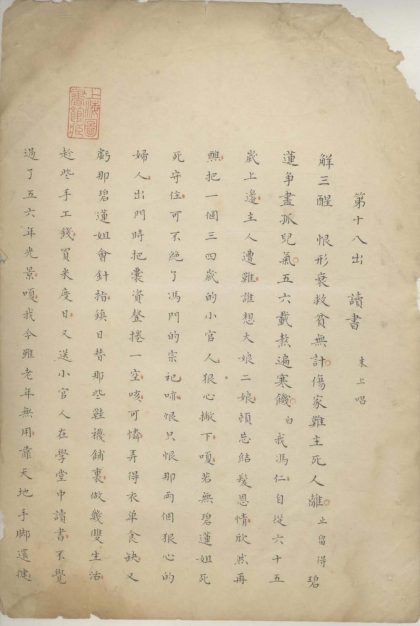 第十八出 讀書 末上唱
解三醒 恨形衰救貧無計傷家難主死人離止留得碧
蓮爭盡孤兒氣五六載熬遍寒饑白我馮仁自從六十五
歲上邊主人遭難誰想大娘二娘頓忘結髮恩情欣然再
醮把一個三四歲的小官人狠心撇下嗄若無碧蓮姐死
死守住可不絕了馮門的宗祀啼恨只恨那兩個狠心的
婦人出門時把囊資盤捲一空咳可憐弄得衣單食缺又
虧那碧蓮姐會針指鎮日替那些鞋襪鋪裏做幾雙生活
趁些手工錢買來度日又送小官人在學堂中讀書不覺
過了五六年光景嗄我今雖老年無用靠天地手腳還健
上海圖書館藏